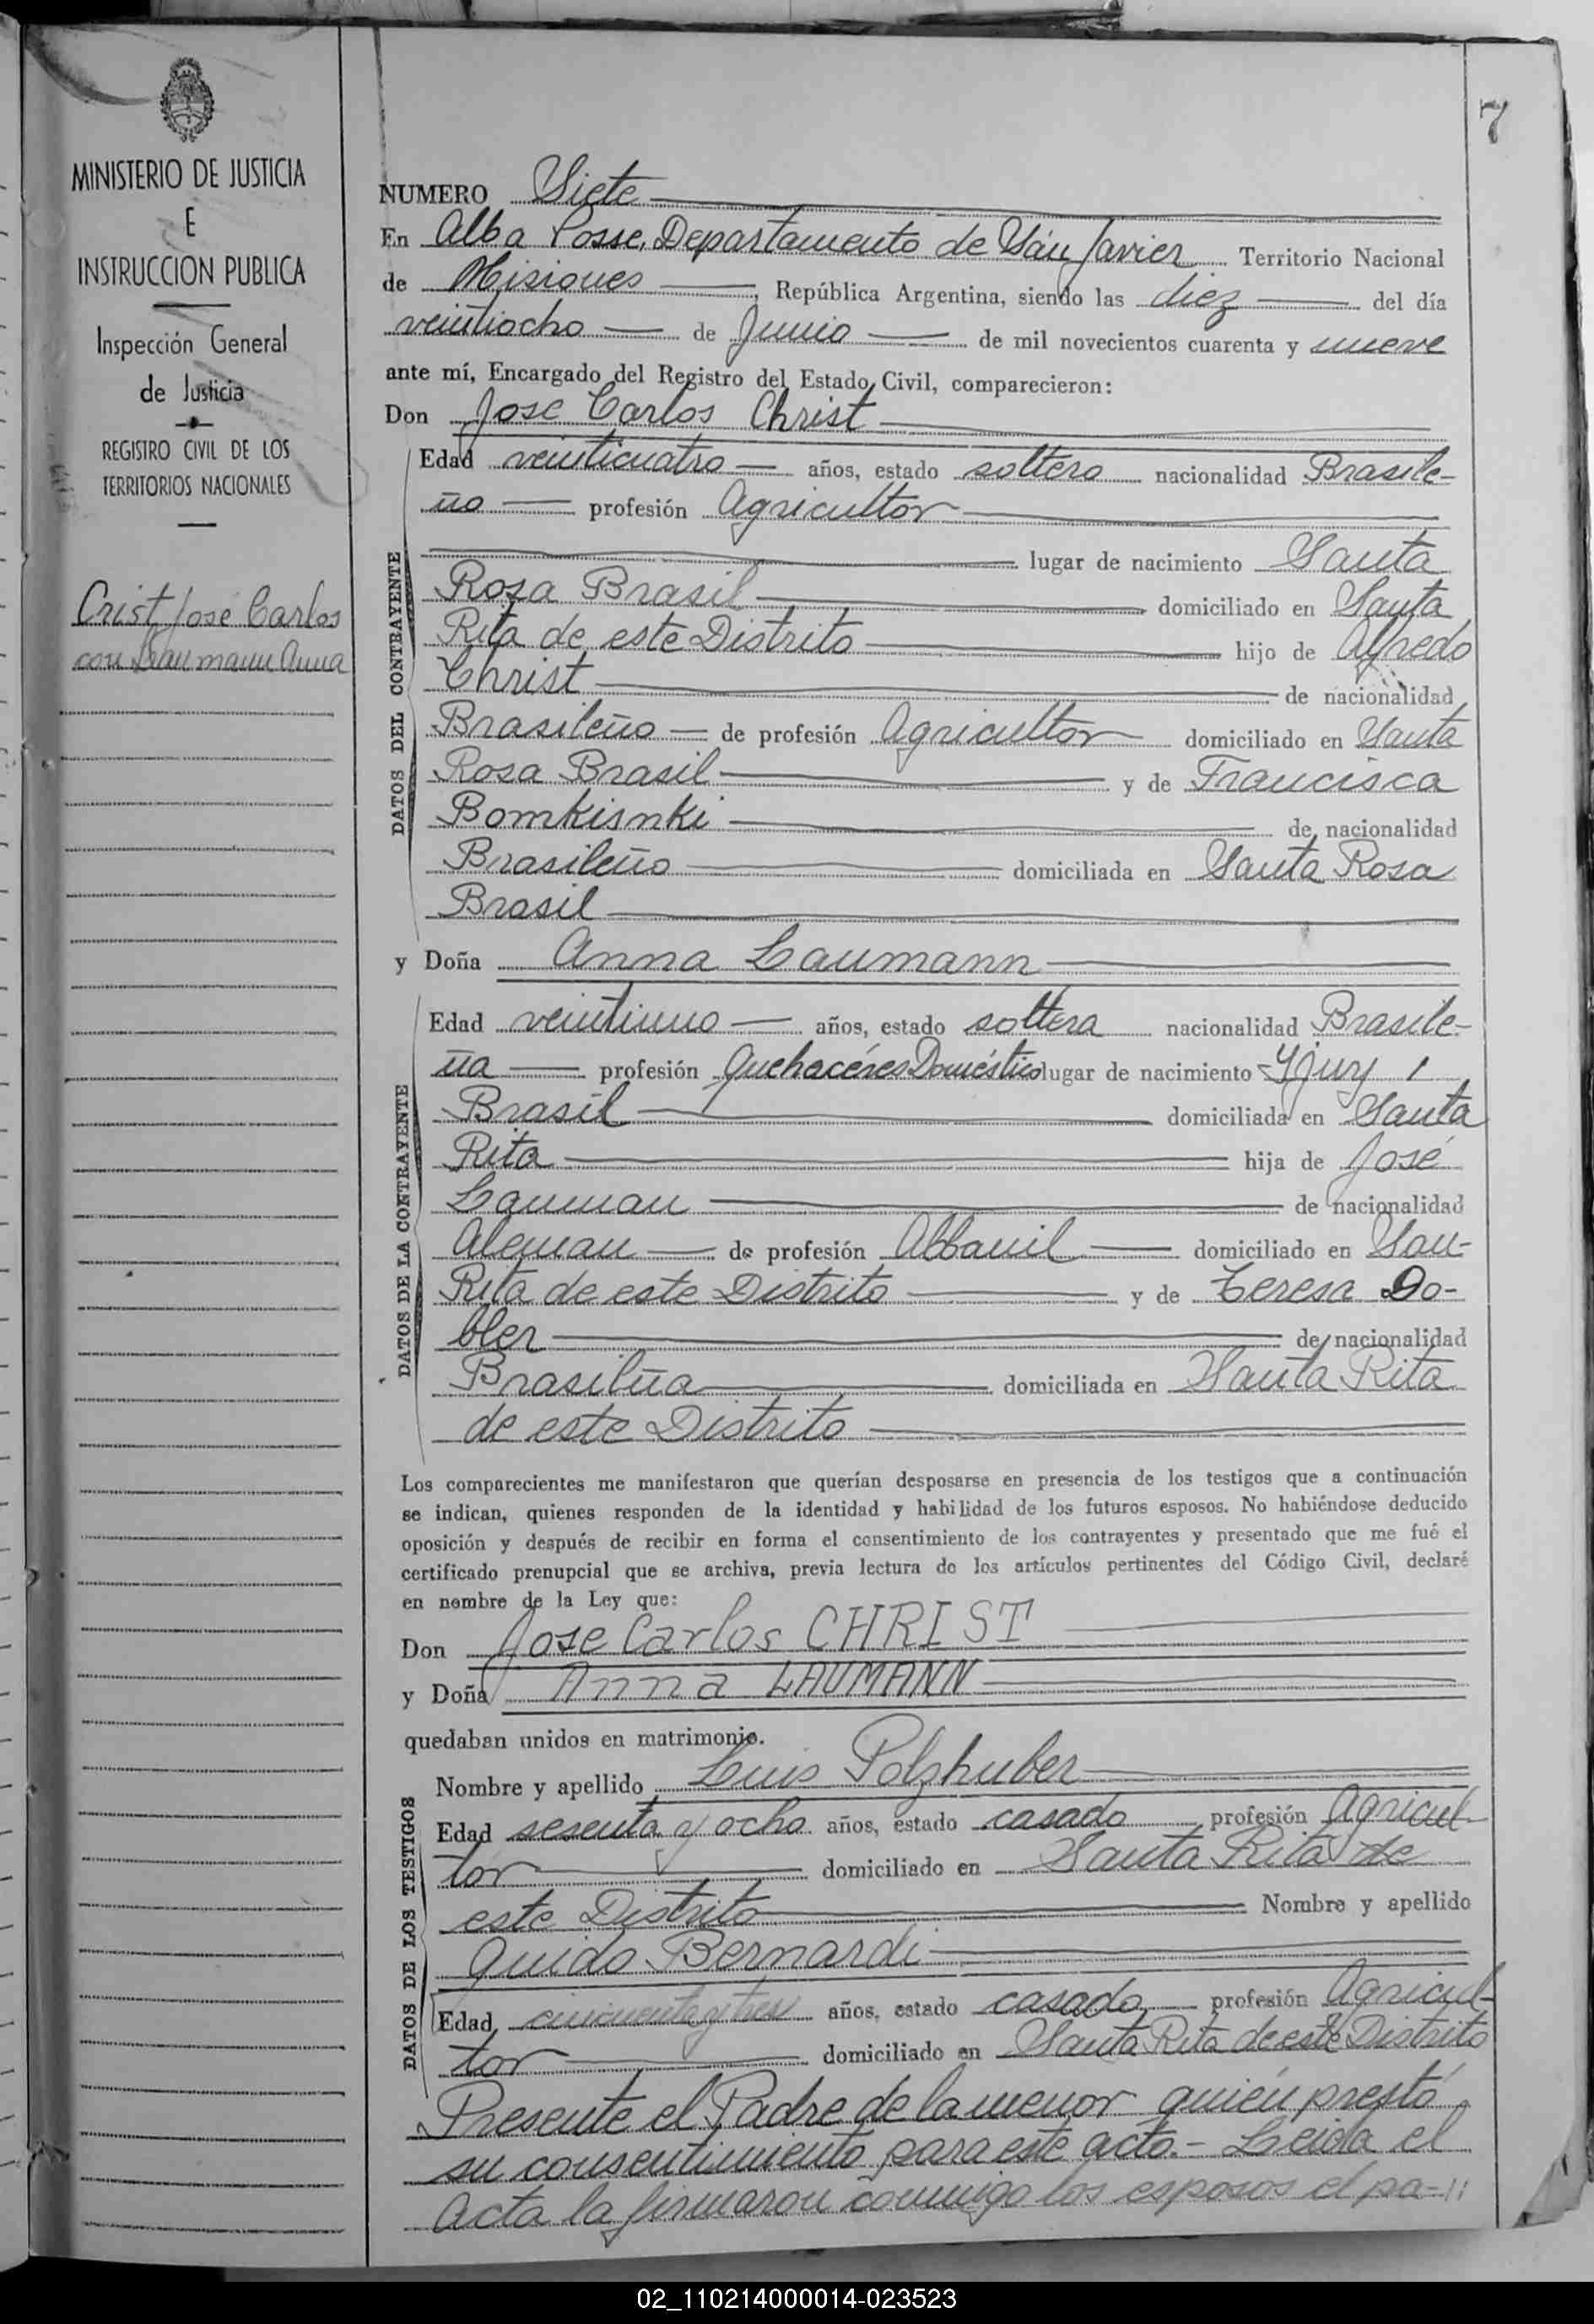 7
MINISTERIO DE JUSTICIA
E
INSTRUCCION PUBLICA
Inspección General
de Justicia
REGISTRO CIVIL DE LOS
TERRITORIOS NACIONALES
Crist José Carlos
con Laumann Anna
NUMERO Siete
En Alba Posse, Departamento de San Javier Territorio Nacional
de Misiones, República Argentina, siendo las diez del día
veintiocho de Junio de mil novecientos cuarenta y nueve
ante mí, Encargado del Registro del Estado Civil, comparecieron:
Don Jose Carlos Christ
DATOS DEL CONTRAYENTE
Edad veinticuatro años, estado soltero nacionalidad Brasile-
ño profesión Agricultor
lugar de nacimiento Santa
Rosa Brasil domiciliado en Santa
Rita de este Distrito hijo de Alfredo
Christ de nacionalidad
Brasileño de profesión Agricultor domiciliado en Santa
Rosa Brasil y de Francisca
Bomkisnki de nacionalidad
Brasileño domiciliada en Santa Rosa
Brasil
y Doña Anna Laumann
DATOS DE LA CONTRAYENTE
Edad veintiuno años, estado soltera nacionalidad Brasile-
ña profesión Quehacéres Doméstico lugar de nacimiento Yjuy
Brasil domiciliada en Santa
Rita hija de José
Lauman de nacionalidad
Aleman de profesión Albanil domiciliado en San-
Rita de este Distrito y de Teresa Do-
bler de nacionalidad
Brasilña domiciliada en Santa Rita
de este Distrito
Los comparecientes me manifestaron que querían desposarse en presencia de los testigos que a continuación
se indican, quienes responden de la identidad y habilidad de los futuros esposos. No habiéndose deducido
oposición y después de recibir en forma el consentimiento de los contrayentes y presentado que me fué el
certificado prenupcial que se archiva, previa lectura de los artículos pertinentes del Código Civil, declaré
en nombre de la Ley que:
Don Jose Carlos CHRIST
y Doña Anna LAUMANN
quedaban unidos en matrimonio.
DATOS DE LOS TESTIGOS
Nombre y apellido Luis Polzhuber
Edad sesenta y ocho años, estado casado profesión Agricul-
tor domiciliado en Santa Rita de
este Distrito Nombre y apellido
Guido Bernardi
Edad cincuenta y tres años, estado casado profesión Agricul-
tor domiciliado en Santa Rita de este Distrito
Presente el Padre de la menor quién prestó
su consentimiento para este acto.- Leida el
Acta la firmaron conmigo los esposos el pa=//
02_110214000014-023523